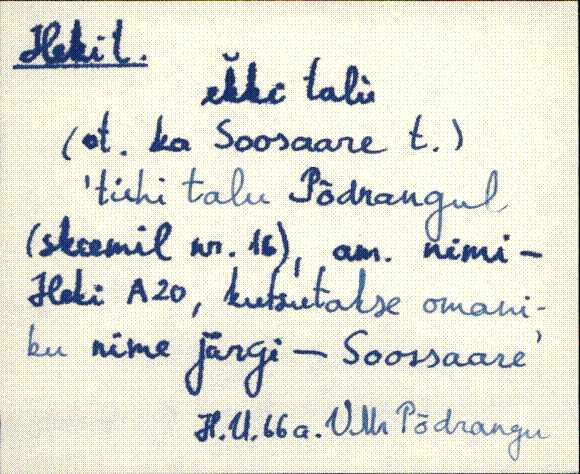 Heki t.
ĕkki talù
(ot. ka Soosaare t.)
'tühi talu Põdrangul
(skeemil nr. 16), am. nimi –
Heki A20, kutsutakse omani-
ku nime järgi – Soossaare'
H.U.66a. VMr Põdrangu